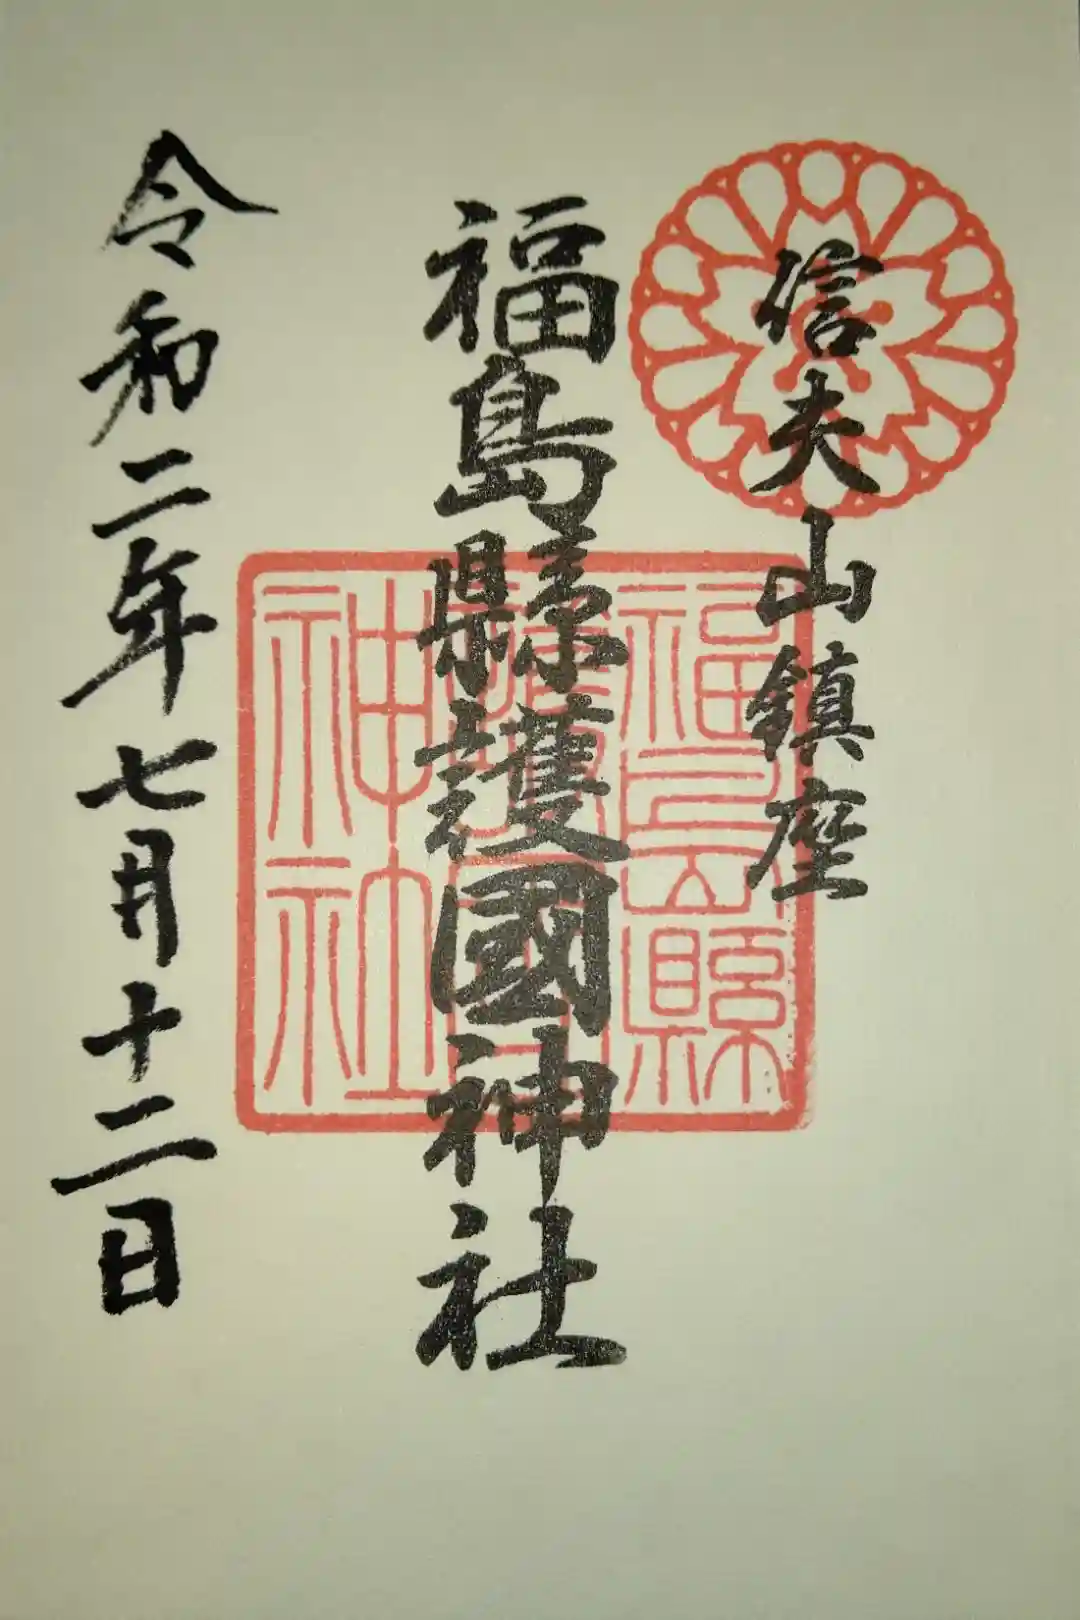 信夫山鎮座
福島縣護國神社
令和二年七月十二日
福島縣
護國
神社